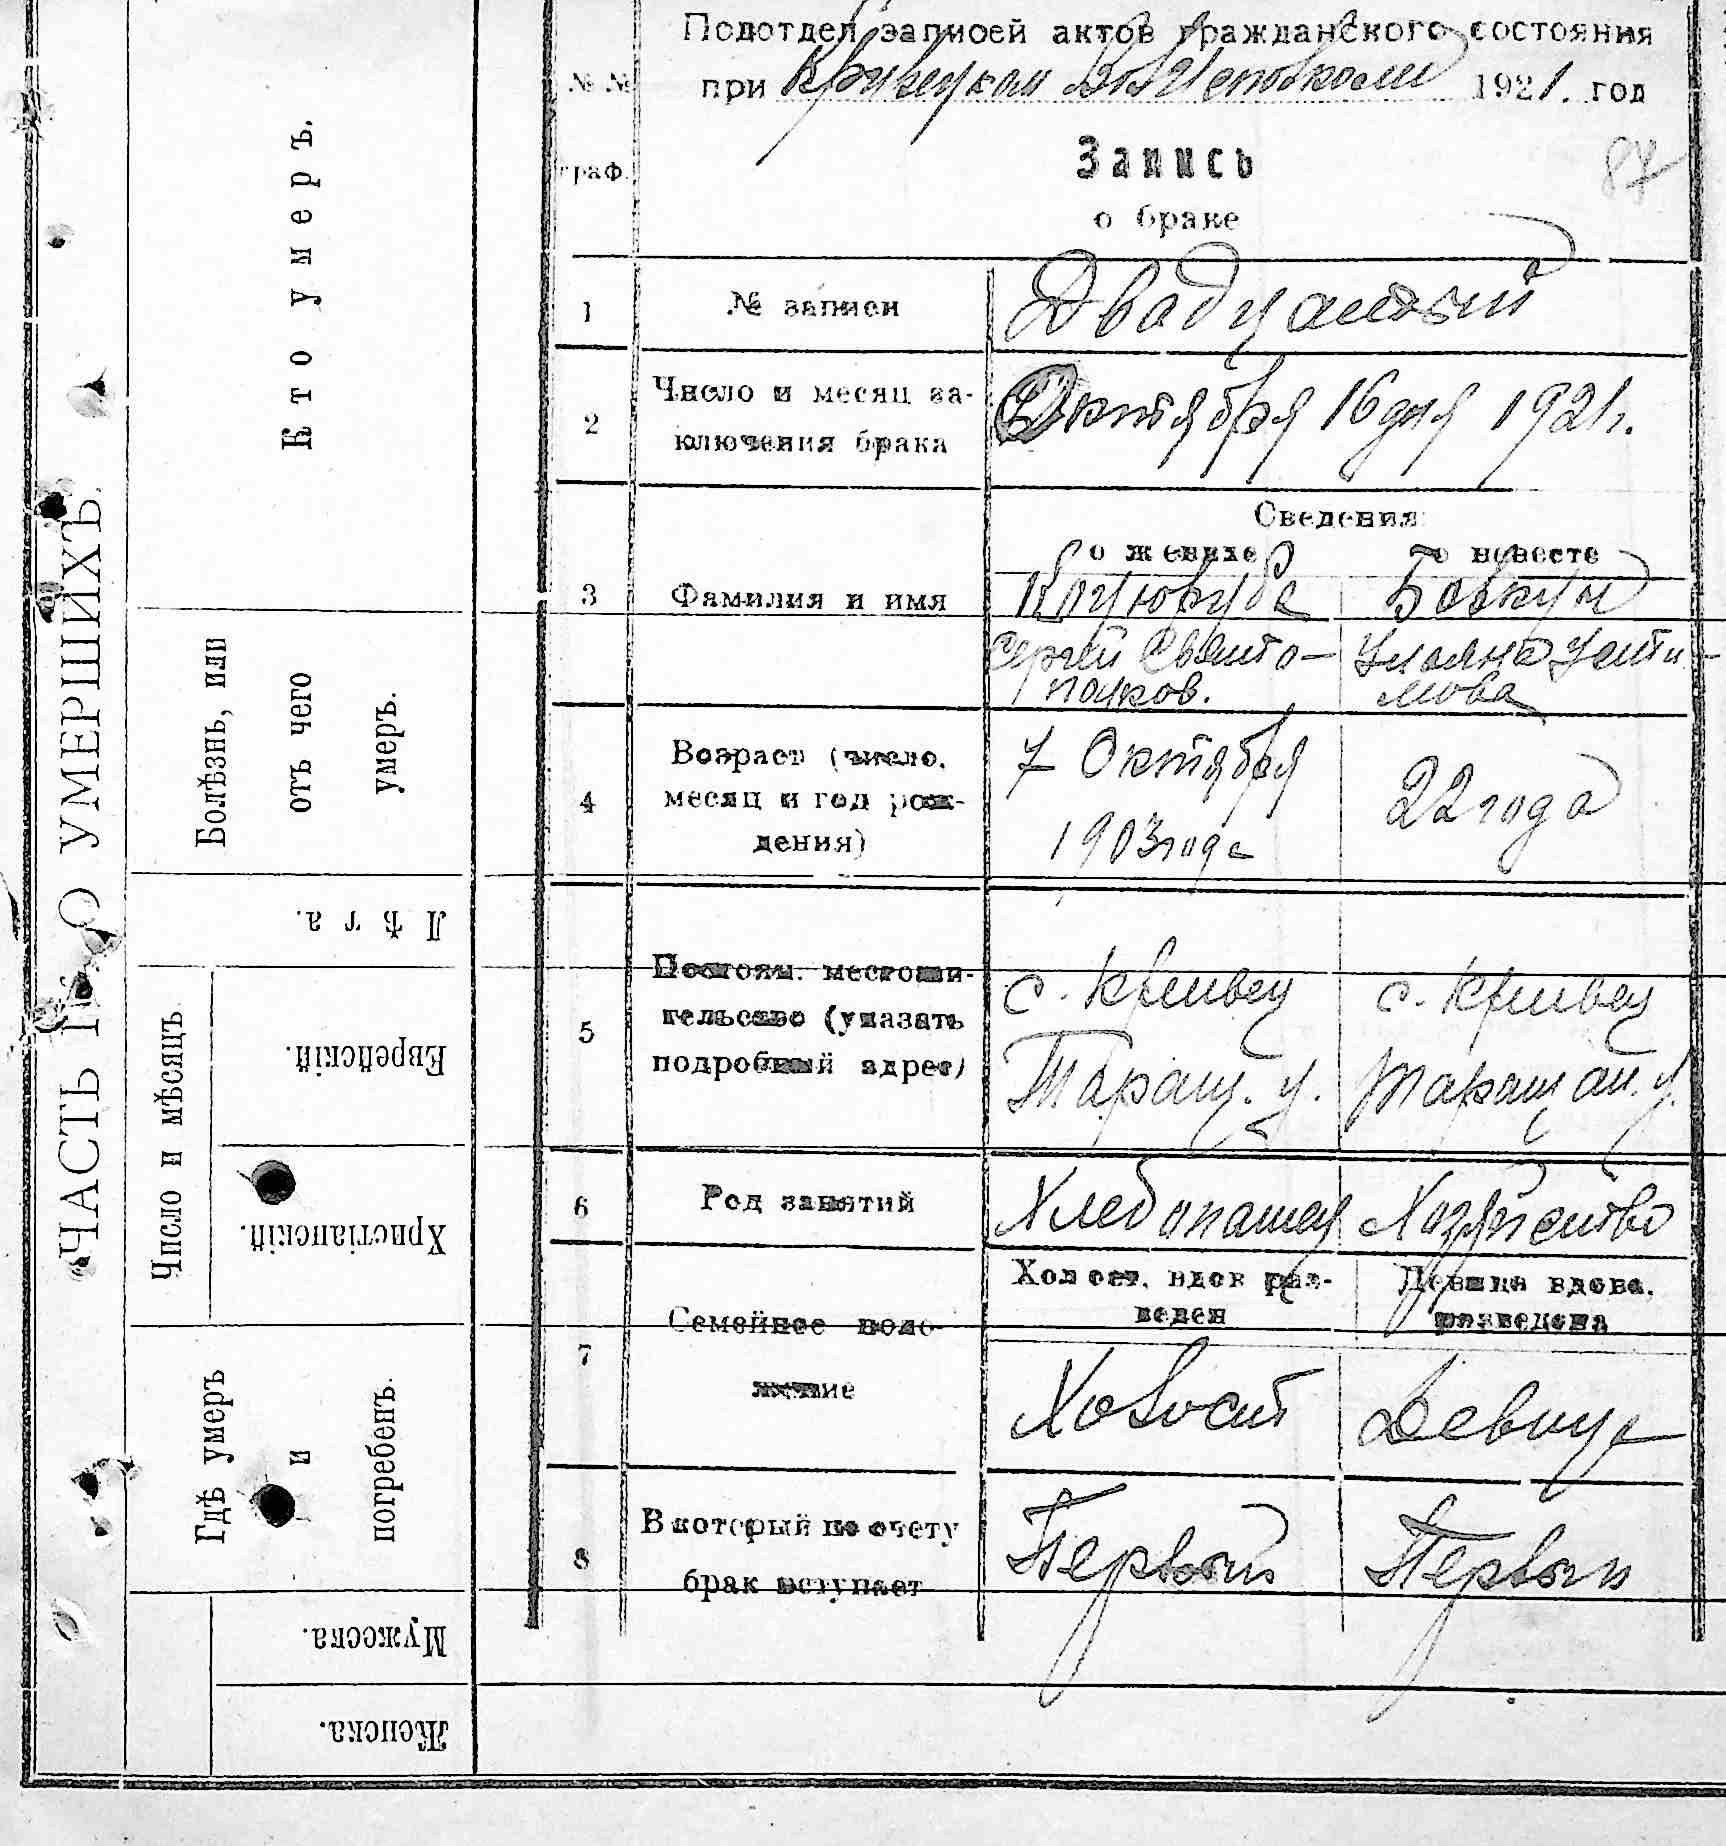 Подотдел записей актов гражданского состояния
при Кривецком Волисполкоме 1921. год
№ №
граф.
Запись
87
о браке
1 № записи Двадцатый
2 Число и месяц за-
ключения брака
Октября 16 дня 1921 г.
Сведения
о женихе о невесте
3 Фамилия и имя Бовкун
Сергей Свято- Ульяна Усти-
полков. мова
4 Возраст (число,
месяц и год рож-
дения)
7 Октября
1903 года
22 года
5 Постоян. местожи-
тельство (указать
подробный адрес)
с. Кривец
Таращ. у.
с. Кривец
Таращан. у.
6 Род занятий Хлебопашец Хозяйство
7 Семейное поло-
жение
Холост, вдов раз-
веден
Девица вдова,
разведена
Холост Девица
8 В который по счету
брак вступает
Первый Первый
ЧАСТЬ IV. О УМЕРШИХЪ.
Кто умеръ.
Болѣзнь, или
отъ чего
умеръ.
Лѣта.
Число и мѣсяцъ
Еврейскій.
Христіанскій.
Гдѣ умеръ
и
погребенъ.
Мужеска.
Женска.